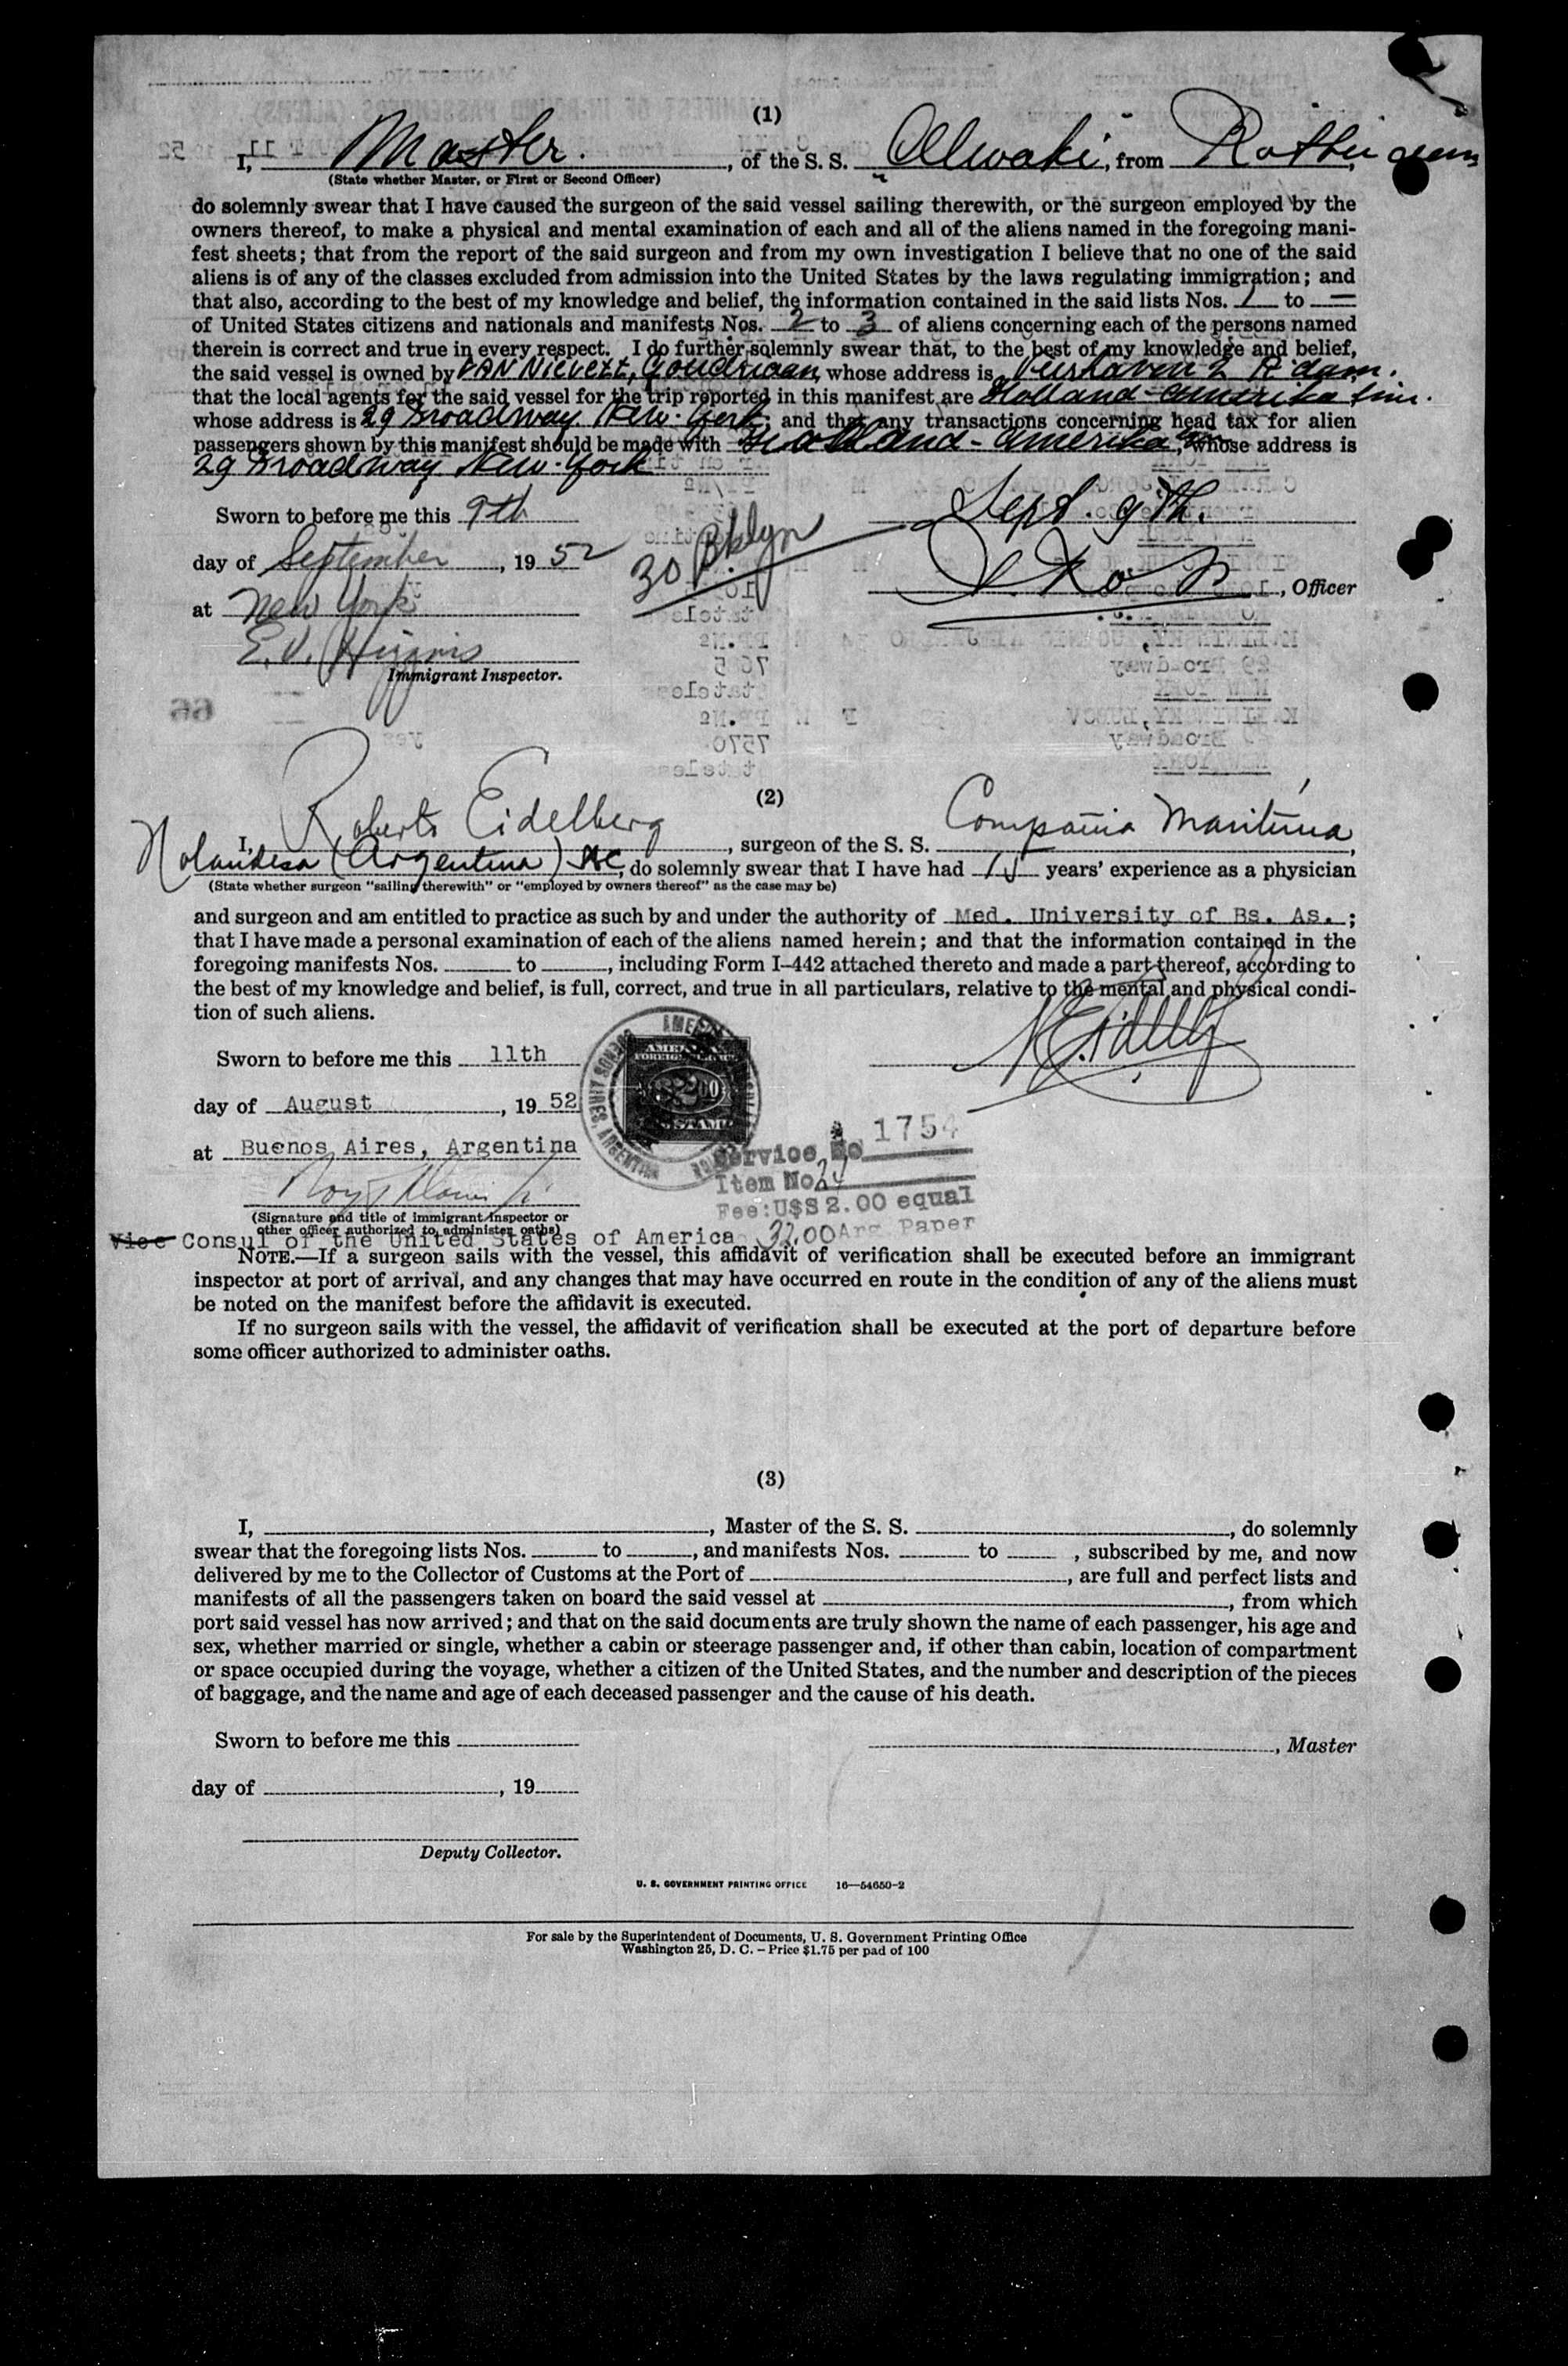 (1)
I, Master. , of the S. S. , from Rotterdam
(State whether Master, or First or Second Officer)
do solemnly swear that I have caused the surgeon of the said vessel sailing therewith, or the surgeon employed by the
owners thereof, to make a physical and mental examination of each and all of the aliens named in the foregoing mani-
fest sheets; that from the report of the said surgeon and from my own investigation I believe that no one of the said
aliens is of any of the classes excluded from admission into the United States by the laws regulating immigration; and
that also, according to the best of my knowledge and belief, the information contained in the said lists Nos. 1 to —
of United States citizens and nationals and manifests Nos. 2 to 3 of aliens concerning each of the persons named
therein is correct and true in every respect. I do further solemnly swear that, to the best of my knowledge and belief,
the said vessel is owned by VAN NIEVELT, Goudriaan, whose address is R'dam.
that the local agents for the said vessel for the trip reported in this manifest are Holland-Amerika
whose address is 29 Broadway New-York; and that any transactions concerning head tax for alien
passengers shown by this manifest should be made with Holland-Amerika, whose address is
29 Broadway New-York
Sworn to before me this 9th
Sept. 9th.
day of September, 19 52
30 Bklyn
, Officer
at New York
E. V. Higgins
Immigrant Inspector.
66
(2)
I, Roberto Eidelberg, surgeon of the S. S. Compañia Marítima,
Holandesa (Argentina) , do solemnly swear that I have had 15 years' experience as a physician
(State whether surgeon "sailing therewith" or "employed by owners thereof" as the case may be)
and surgeon and am entitled to practice as such by and under the authority of Med. University of Bs. As. ;
that I have made a personal examination of each of the aliens named herein; and that the information contained in the
foregoing manifests Nos. to , including Form I-442 attached thereto and made a part thereof, according to
the best of my knowledge and belief, is full, correct, and true in all particulars, relative to the mental and physical condi-
tion of such aliens.
Sworn to before me this 11th
day of August , 19 52
at Buenos Aires, Argentina
BUENOS AIRES, ARGENTINA
$2.00
STAMP
Service No 1754
Item No 24
Fee: U$S 2.00 equal
32.00 Arg. Paper
(Signature and title of immigrant inspector or
other officer authorized to administer oaths)
Vice Consul of the United States of America
NOTE.—If a surgeon sails with the vessel, this affidavit of verification shall be executed before an immigrant
inspector at port of arrival, and any changes that may have occurred en route in the condition of any of the aliens must
be noted on the manifest before the affidavit is executed.
If no surgeon sails with the vessel, the affidavit of verification shall be executed at the port of departure before
some officer authorized to administer oaths.
(3)
I, , Master of the S. S. , do solemnly
swear that the foregoing lists Nos. to , and manifests Nos. to , subscribed by me, and now
delivered by me to the Collector of Customs at the Port of , are full and perfect lists and
manifests of all the passengers taken on board the said vessel at , from which
port said vessel has now arrived; and that on the said documents are truly shown the name of each passenger, his age and
sex, whether married or single, whether a cabin or steerage passenger and, if other than cabin, location of compartment
or space occupied during the voyage, whether a citizen of the United States, and the number and description of the pieces
of baggage, and the name and age of each deceased passenger and the cause of his death.
Sworn to before me this
, Master
day of , 19
Deputy Collector.
U. S. GOVERNMENT PRINTING OFFICE 16—54650-2
For sale by the Superintendent of Documents, U. S. Government Printing Office
Washington 25, D. C. - Price $1.75 per pad of 100